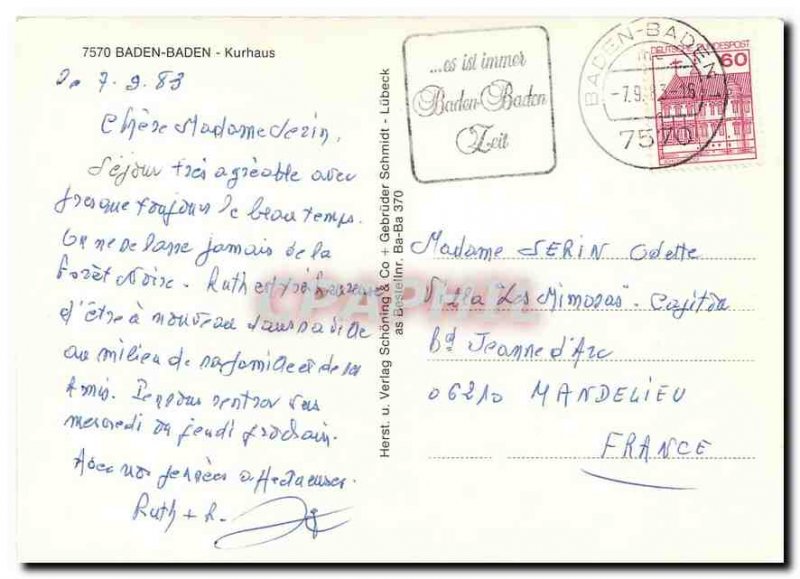 7570 BADEN-BADEN - Kurhaus
7.9.83
Chère Madame Serin,
Séjour très agréable avec
presque toujours le beau temps.
On ne se lasse jamais de la
Forêt Noire. Ruth est très heureuse
d'être à nouveau dans sa ville
au milieu de sa famille et de ses
Amis. Je pense rentrer vers
mercredi ou jeudi prochain.
Avec nos pensées affectueuses.
Ruth + R.
Herst. u. Verlag Schöning & Co + Gebrüder Schmidt - Lübeck
as Bestellnr. Ba-Ba 370
...es ist immer
Baden-Baden
Zeit
BADEN-BADEN
-7.9.83-16
7570
DEUTSCHE BUNDESPOST
60
Madame SERIN Odette
Villa "Les Mimosas" - Capitou
Bd Jeanne d'Arc
06210 MANDELIEU
FRANCE
CPAPHIL